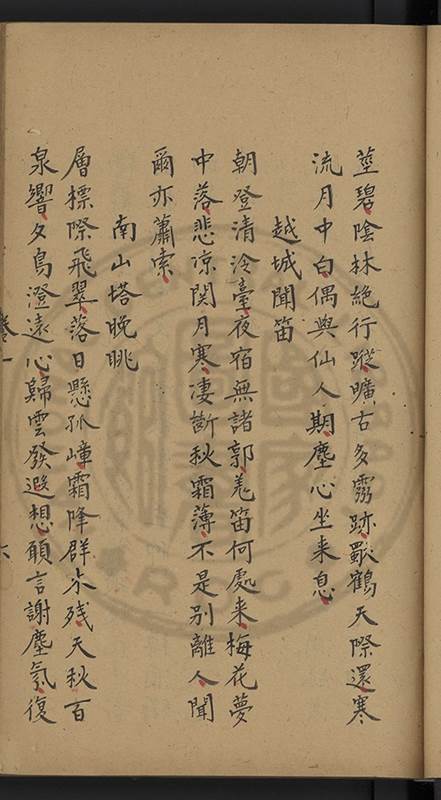 莖碧陰林絶行蹤曠古多靈跡歐鶴天際還寒
流月中白偶與仙人期塵心坐来息
越城聞笛
朝登清泠臺夜宿無諸郭羌笛何處来梅花夢
中落悲凉関月寒凄斷秋霜薄不是别離人聞
爾亦蕭索
南山塔晚眺
層標際飛翠落日懸孤嶂霜降群木残天秋百
泉響夕鳥澄遠心歸雲發遐想願言謝塵氛復
卷一
六